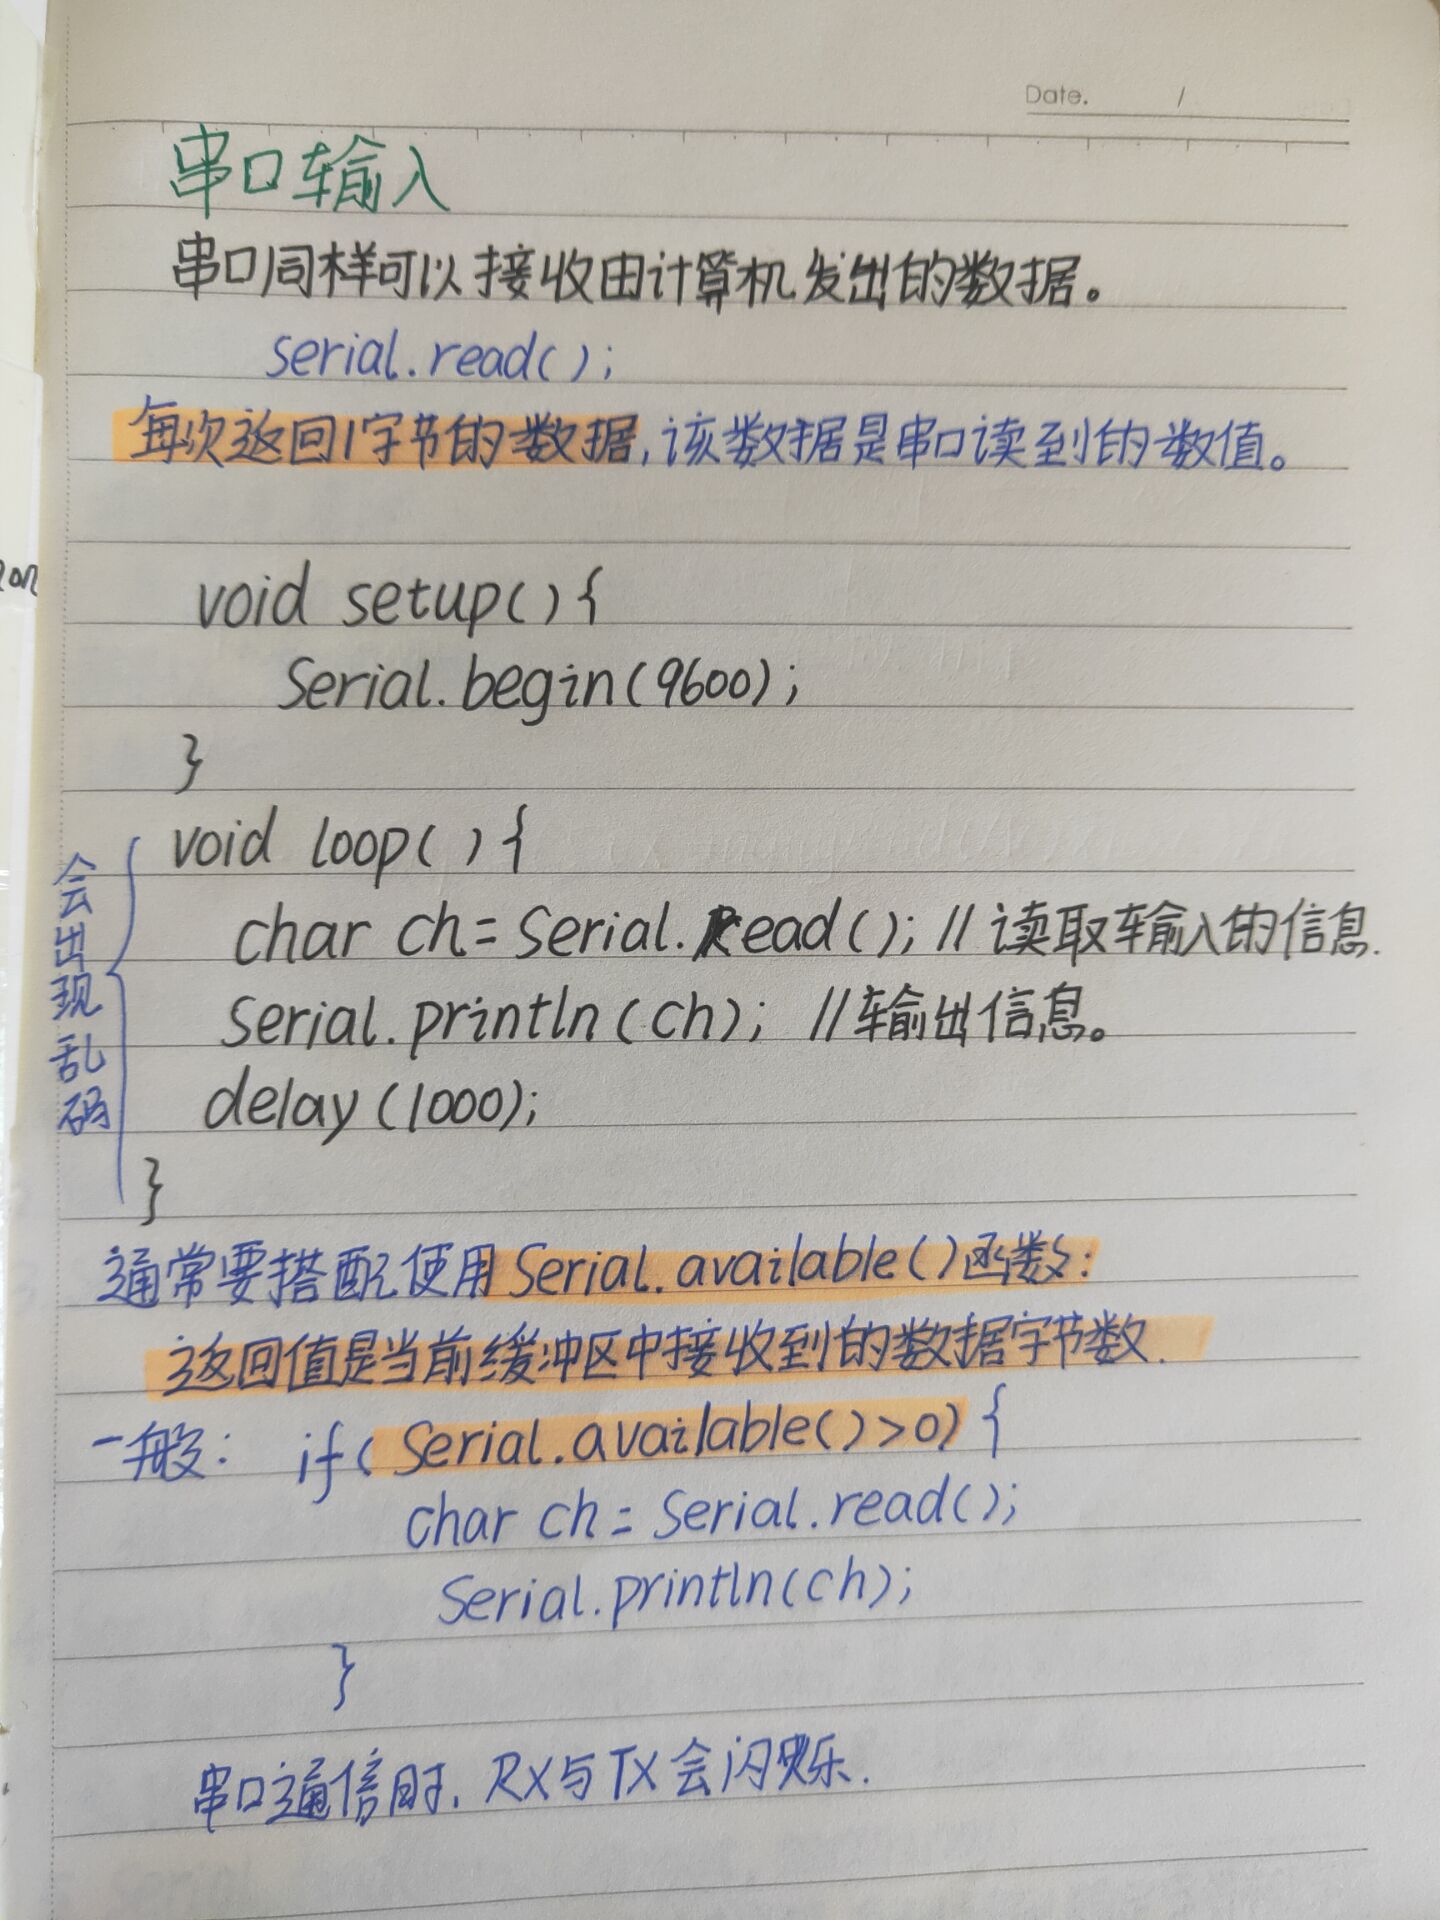 Date. /
串口输入
串口同样可以接收由计算机发出的数据。
serial.read();
每次返回1字节的数据,该数据是串口读到的数值。
void setup(){
Serial.begin(9600);
}
void loop(){
会出现乱码
char ch=Serial.Read(); //读取输入的信息.
Serial.println(ch); //输出信息。
delay(1000);
}
通常要搭配使用Serial.available()函数:
返回值是当前缓冲区中接收到的数据字节数.
一般: if(Serial.available()>0){
char ch=Serial.read();
Serial.println(ch);
}
串口通信时,RX与TX会闪烁.